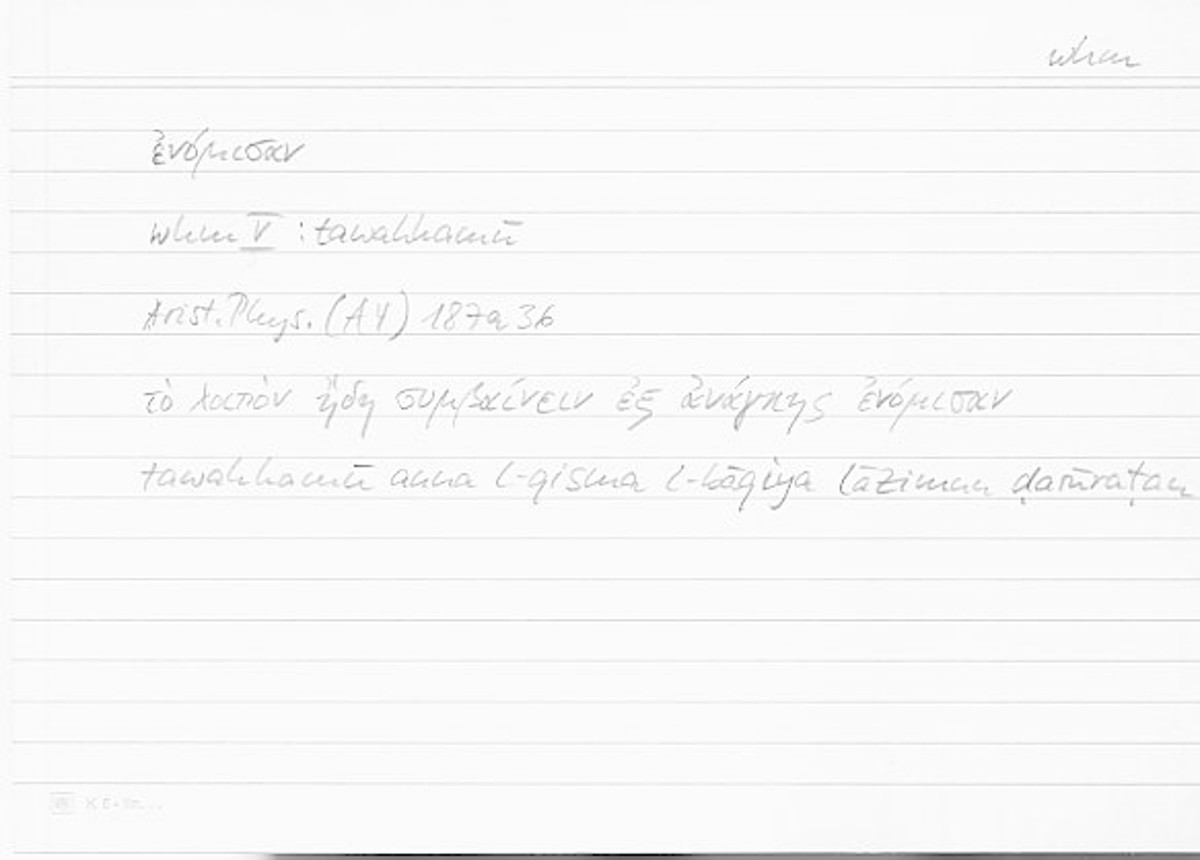 whm
ἐνόμισαν
whm V : tawahhamū
Arist. Phys. (A4) 187a36
τὸ λοιπὸν ἤδη συμβαίνειν ἐξ ἀνάγκης ἐνόμισαν
tawahhamū anna l-qisma l-bāqiya lāzimun ḍarūraṭan